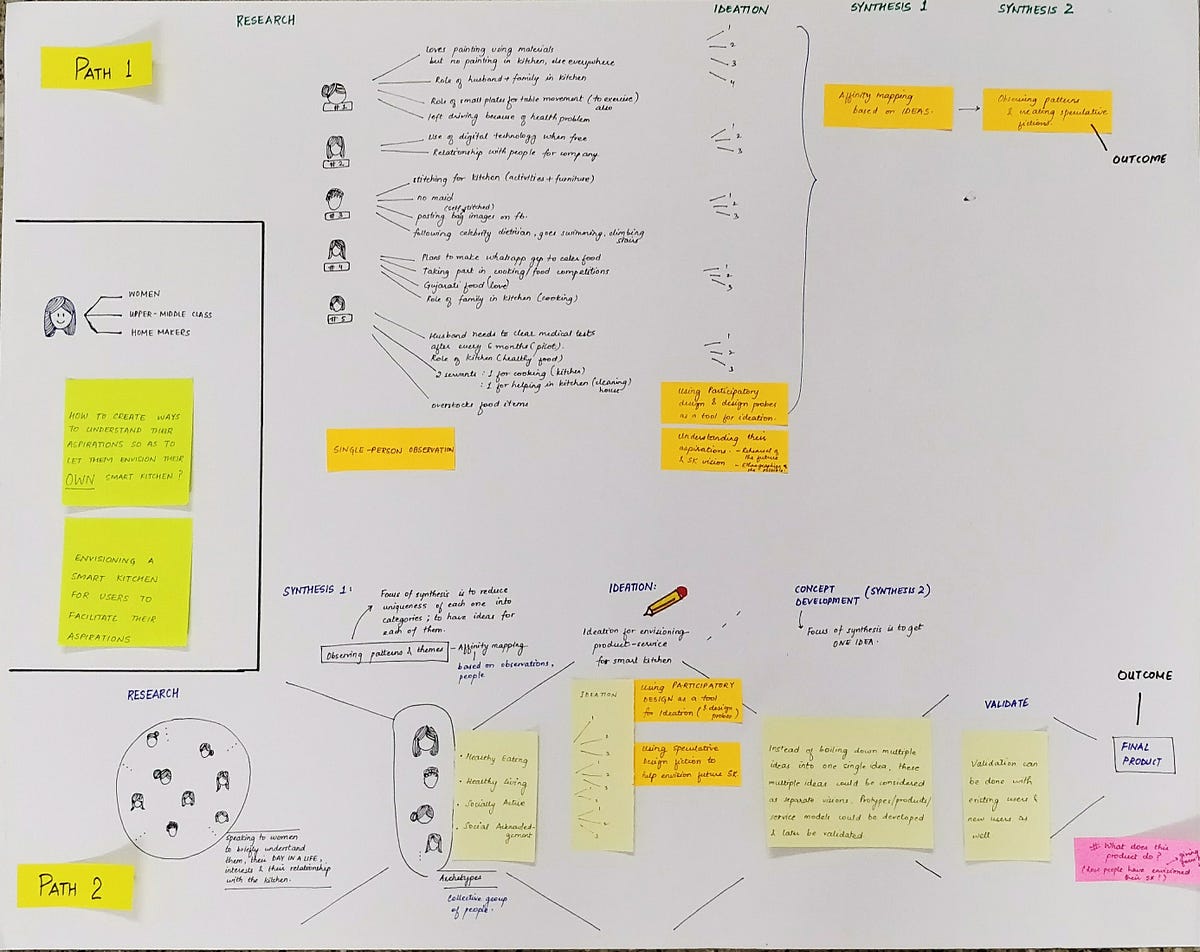 RESEARCH
IDEATION
SYNTHESIS 1
SYNTHESIS 2
PATH 1
#1
loves painting using materials
but no painting in kitchen, else everywhere
Role of husband + family in kitchen
Role of small plates for table movement (to exercise)
also
left driving because of health problem
1
2
3
4
#2
Use of digital technology when free
Relationship with people for company
1
2
3
#3
stitching for kitchen (activities + furniture)
no maid
(self stitched)
posting bag images on fb.
following celebrity dietitian, goes swimming, climbing
stairs
1
2
3
#4
Plans to make whatsapp grp to cater food
Taking part in cooking/food competitions
Gujarati food (love)
Role of family in kitchen (cooking)
1
2
3
#5
Husband needs to clear medical tests
after every 6 months (pilot).
Role of kitchen (healthy food)
2 servants : 1 for cooking (kitchen)
: 1 for helping in kitchen (cleaning)
house
overstocks food items
1
2
3
SINGLE-PERSON OBSERVATION
using Participatory
design & design probes
as a tool for ideation.
Understanding their
aspirations. - Rehearsal of
the future
& SK vision - Ethnographies of
the possible
Affinity mapping
based on IDEAS.
Observing patterns
& creating speculative
fictions.
OUTCOME
WOMEN
UPPER-MIDDLE CLASS
HOME MAKERS
HOW TO CREATE WAYS
TO UNDERSTAND THEIR
ASPIRATIONS SO AS TO
LET THEM ENVISION THEIR
OWN SMART KITCHEN ?
ENVISIONING A
SMART KITCHEN
FOR USERS TO
FACILITATE THEIR
ASPIRATIONS
RESEARCH
Speaking to women
to briefly understand
them, their DAY IN A LIFE,
interests & their relationship
with the kitchen.
PATH 2
SYNTHESIS 1:
Focus of synthesis is to reduce
uniqueness of each one into
categories ; to have ideas for
each of them.
Observing patterns & themes - Affinity mapping
based on observations,
people
• Healthy Eating
• Healthy Living
• Socially Active
• Social Acknowled-
gement
Archetypes
Collective group
of people.
IDEATION:
Ideation for envisioning
product-service
for smart kitchen
IDEATION
using PARTICIPATORY
DESIGN as a tool
for Ideation (& design
probes)
Using Speculative
Design fiction to
help envision future SK.
CONCEPT
DEVELOPMENT (SYNTHESIS 2)
Focus of synthesis is to get
ONE IDEA.
Instead of boiling down multiple
ideas into one single idea, these
multiple ideas could be considered
as separate visions. Protypes/products/
service models could be developed
& later be validated
VALIDATE
Validation can
be done with
existing users &
new users as
well
OUTCOME
FINAL
PRODUCT
# What does this
product do ?
(How people have envisioned
their SK !)